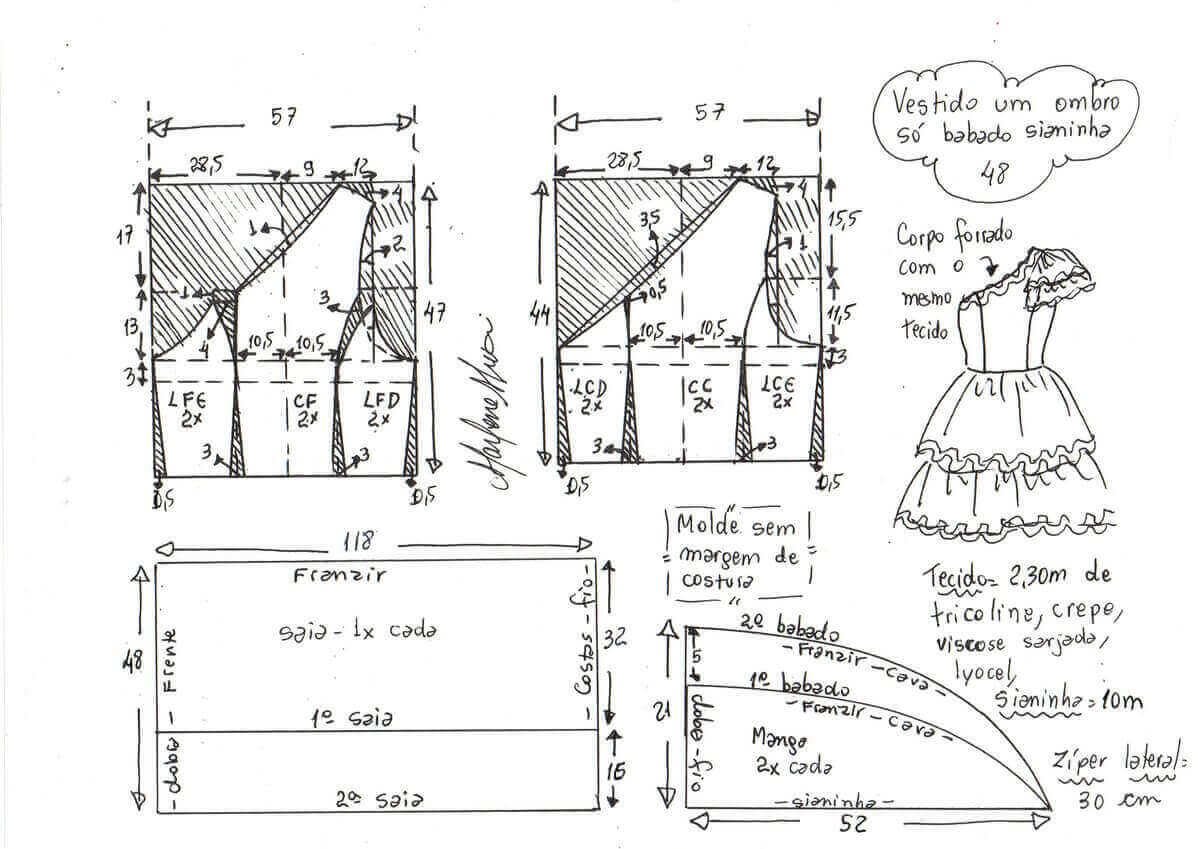 Vestido um ombro
só babado sianinha
48
57
28,5
9
12
4
17
1
2
1
3
13
4
10,5
10,5
47
3
LFE
2x
CF
2x
LFD
2x
3
3
0,5
0,5
57
28,5
9
12
4
15,5
3,5
1
44
0,5
11,5
10,5
10,5
3
LCD
2x
CC
2x
LCE
2x
3
3
0,5
0,5
Corpo forrado
com o
mesmo
tecido
118
Franzir
saia - 1x cada
48
dobra - Frente
Costas - fio -
32
1ª saia
16
2ª saia
Molde sem
margem de
costura
2º babado
- Franzir - cava -
5
1º babado
- Franzir - cava -
21
dobra - fio
Manga
2x cada
- sianinha -
52
Tecido = 2,30m de
tricoline, crepe,
viscose sarjada,
lyocel,
sianinha = 10m
Zíper lateral =
30 cm